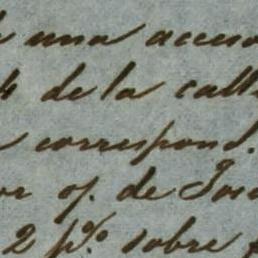 una acceso
4 de la call
correspond.
or of. de Jos
2 p%. sobre